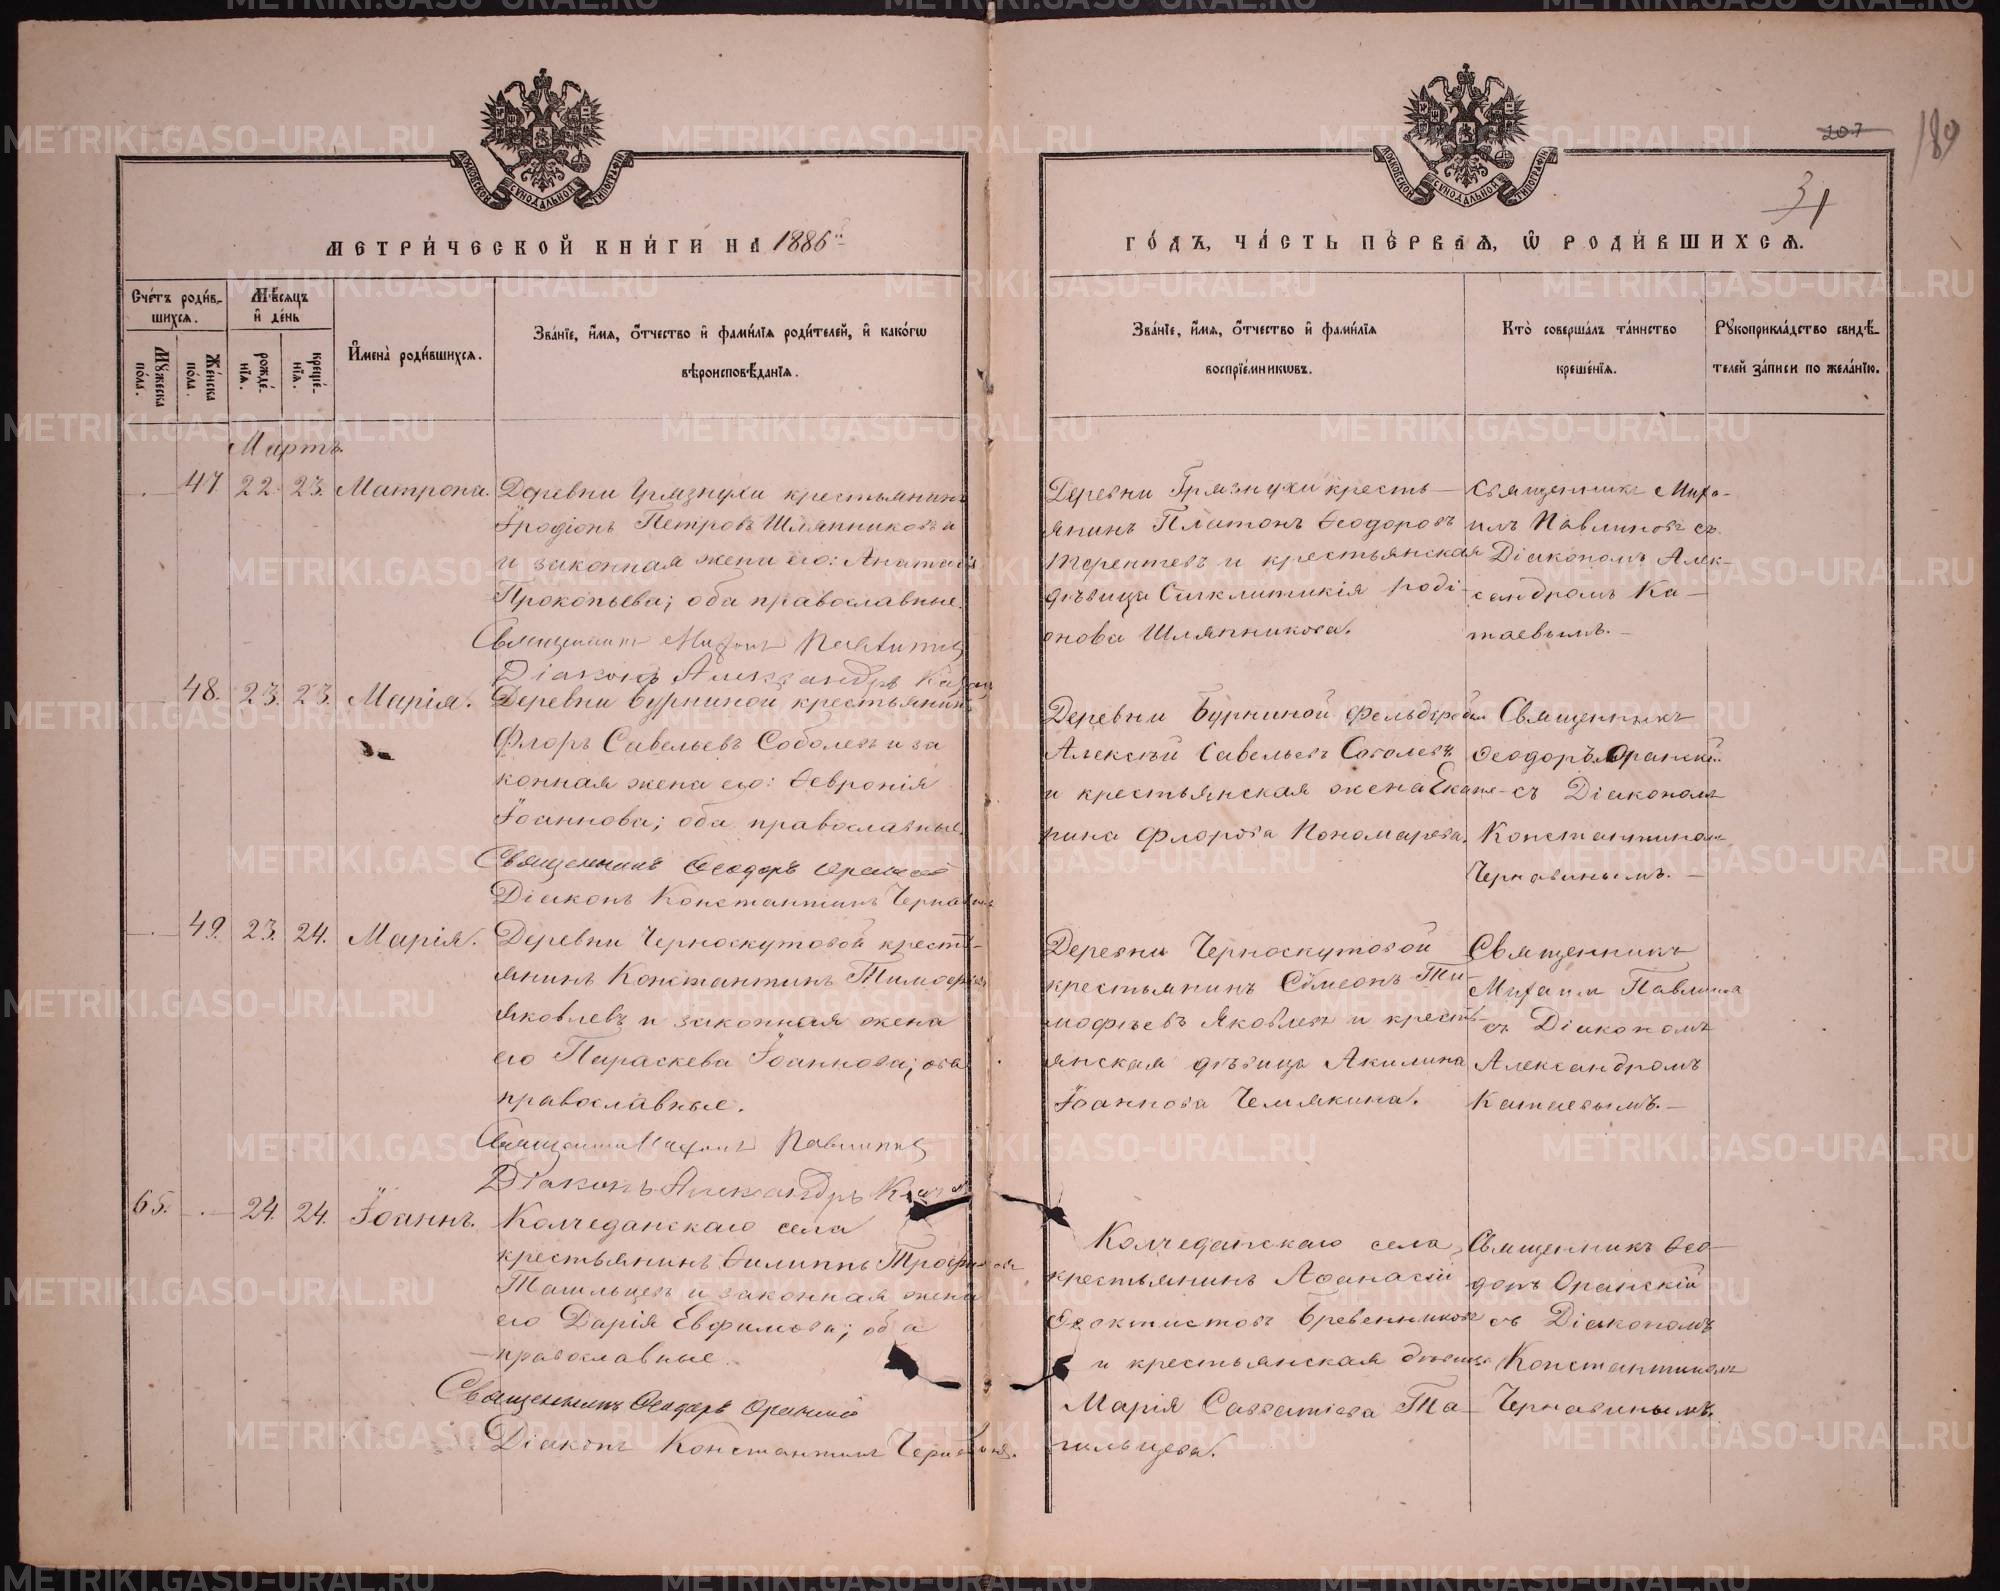 МОСКОВСКОЙ СѴНОДАЛЬНОЙ ТИПОГРАФІИ
МЕТРИЧЕСКОЙ КНИГИ НА 1886й
Счетъ родившихся.
Мужеска пола.
Женска пола.
Мѣсяцъ и день
рожденія.
крещенія.
Имена родившихся.
Званіе, имя, отчество и фамилія родителей, и какогѡ вѣроисповѣданія.
Мартъ.
47. 22. 23. Матрона.
Деревни Грязнухи крестьянинъ
Іродіонъ Петровъ Шляпниковъ
и законная жена его:
Прокопьева; оба православные.
Священникъ Михаилъ Павлиновъ
Діаконъ Александръ
48. 23. 23. Марія.
Деревни Бурниной крестьянинъ
Флоръ Савельевъ Соболевъ и за
конная жена его: Ѳевронія
Іоаннова; оба православные.
Священникъ Ѳеодоръ Оранскій
Діаконъ Константинъ Чернавинъ
49. 23. 24. Марія.
Деревни Черноскутовой кресть-
янинъ Константинъ Тимофѣевъ
Яковлевъ и законная жена
его Параскева Іоаннова; оба
православные.
Священникъ Михаилъ Павлиновъ
Діаконъ Александръ
65. 24. 24. Іоаннъ.
Колчеданскаго села
крестьянинъ Филиппъ Трофимовъ
и законная жена
его Дарія Евфимова; оба
православные.
Священникъ Ѳеодоръ Оранскій
Діаконъ Константинъ Чернавинъ.
МОСКОВСКОЙ СѴНОДАЛЬНОЙ ТИПОГРАФІИ
207
189
31
ГОДЪ, ЧАСТЬ ПЕРВАЯ, Ѡ РОДИВШИХСЯ.
Званіе, имя, отчество и фамилія воспріемникѡвъ.
Кто совершалъ таинство крещенія.
Рукоприкладство свидѣтелей записи по желанію.
Деревни Грязнухи кресть-
янинъ Платонъ Ѳеодоровъ
Терентевъ и крестьянская
дѣвица Сигклитикія Роді-
онова Шляпникова.
Священникъ Миха-
илъ Павлиновъ съ
Діакономъ Алек-
сандромъ Ка-
таевымъ.-
Деревни Бурниной
Алексѣй Савельевъ Соболевъ
и крестьянская жена Екате-
рина Флорова Пономарева.
Священникъ
Ѳеодоръ Оранскій
съ Діакономъ
Константиномъ
Чернавинымъ.-
Деревни Черноскутовой
крестьянинъ Сѵмеонъ Ти-
мофѣевъ Яковлевъ и кресть-
янская дѣвица Акилина
Іоаннова Чемякина.
Священникъ
Михаилъ Павлиновъ
съ Діакономъ
Александромъ
Катаевымъ.-
Колчеданскаго села
крестьянинъ Аѳанасій
Ѳеоктистовъ Бревенниковъ
и крестьянская дѣвица
Марія Савватіева Та-
гильцева.
Священникъ Ѳео-
доръ Оранскій
съ Діакономъ
Константиномъ
Чернавинымъ.
METRIKI.GASO-URAL.RU